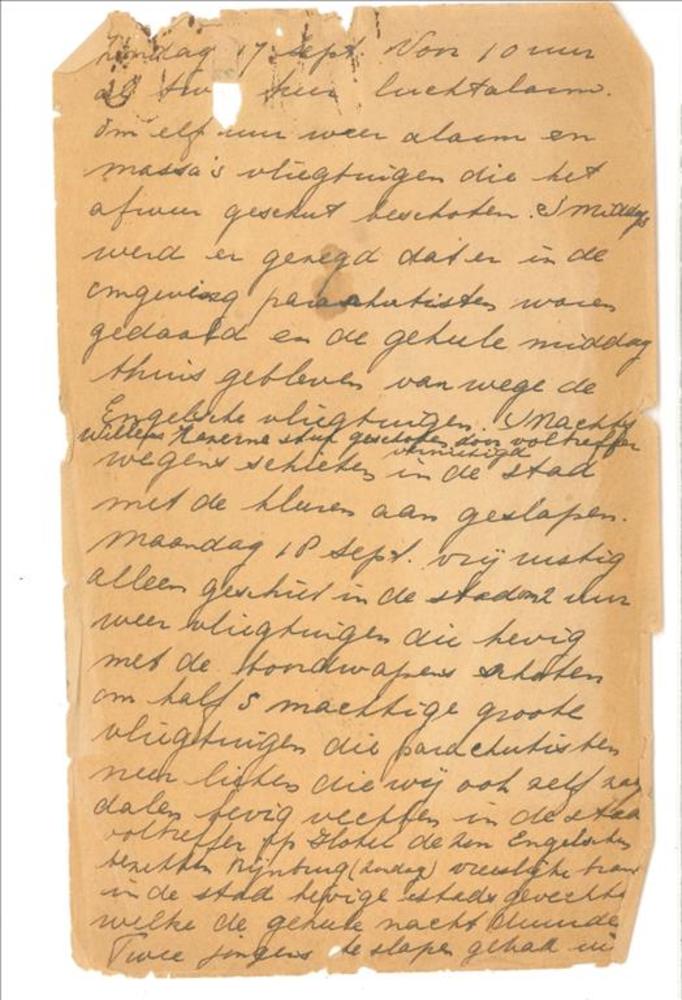 Zondag 17 Sept. Voor 10 uur
al keer luchtalarm.
Om elf uur weer alarm en
massa's vliegtuigen die het
afweer geschut beschoten. S'middags
werd er gezegd dat er in de
omgeving parachutisten waren
gedaald en de geheele middag
thuis gebleven van wege de
Engelsche vliegtuigen. S'Nachts
Willems Kazerne stuk geschoten door voltreffer
vernietigd
wegens schieten in de stad
met de kleren aan geslapen.
Maandag 18 Sept. vrij rustig
alleen geschut in de stad om 2 uur
weer vliegtuigen die hevig
met de boordwapens schoten
om half 5 machtige groote
vliegtuigen die parachutisten
neer lieten die wij ook zelf zag
dalen hevig vechten in de stad
voltreffer op Hotel de Zon Engelschen
bezetten Rijnbrug (Zondag) vreeslijke brand
in de stad hevige stads gevechte
welke de geheele nacht duurde
Twee jongens te slapen gehad uit